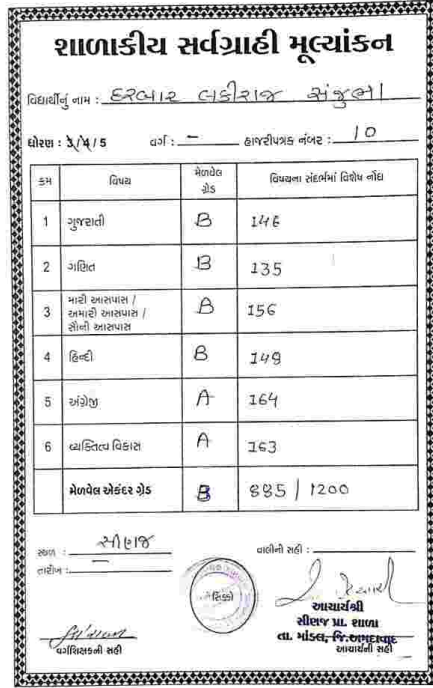 શાળાકીય સર્વગ્રાહી મૂલ્યાંકન
વિદ્યાર્થીનું નામ : દરબાર લકીરાજ સંજુભા
ધોરણ : 3/4/5 વર્ગ : – હાજરીપત્રક નંબર : 10
ક્રમ વિષય મેળવેલ ગ્રેડ વિષયના સંદર્ભમાં વિશેષ નોંધ
1 ગુજરાતી B 146
2 ગણિત B 135
3 મારી આસપાસ / અમારી આસપાસ / સૌની આસપાસ B 156
4 હિન્દી B 149
5 અંગ્રેજી A 164
6 વ્યક્તિત્વ વિકાસ A 163
મેળવેલ એકંદર ગ્રેડ B 885 / 1200
સ્થળ : સીણજ વાલીની સહી :
તારીખ : –
સિક્કો
આચાર્યશ્રી
સીણજ પ્રા. શાળા
તા. માંડલ, જિ.અમદાવાદ
વર્ગશિક્ષકની સહી આચાર્યની સહી